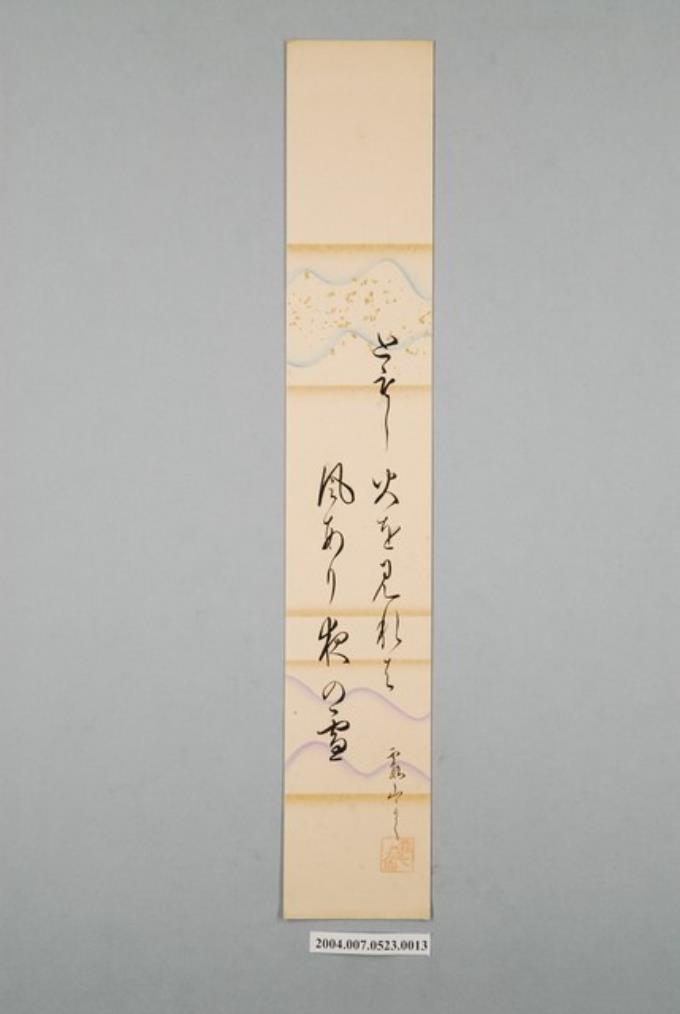 ともし火を見れは
風あり夜の雪
2004.007.0523.0013